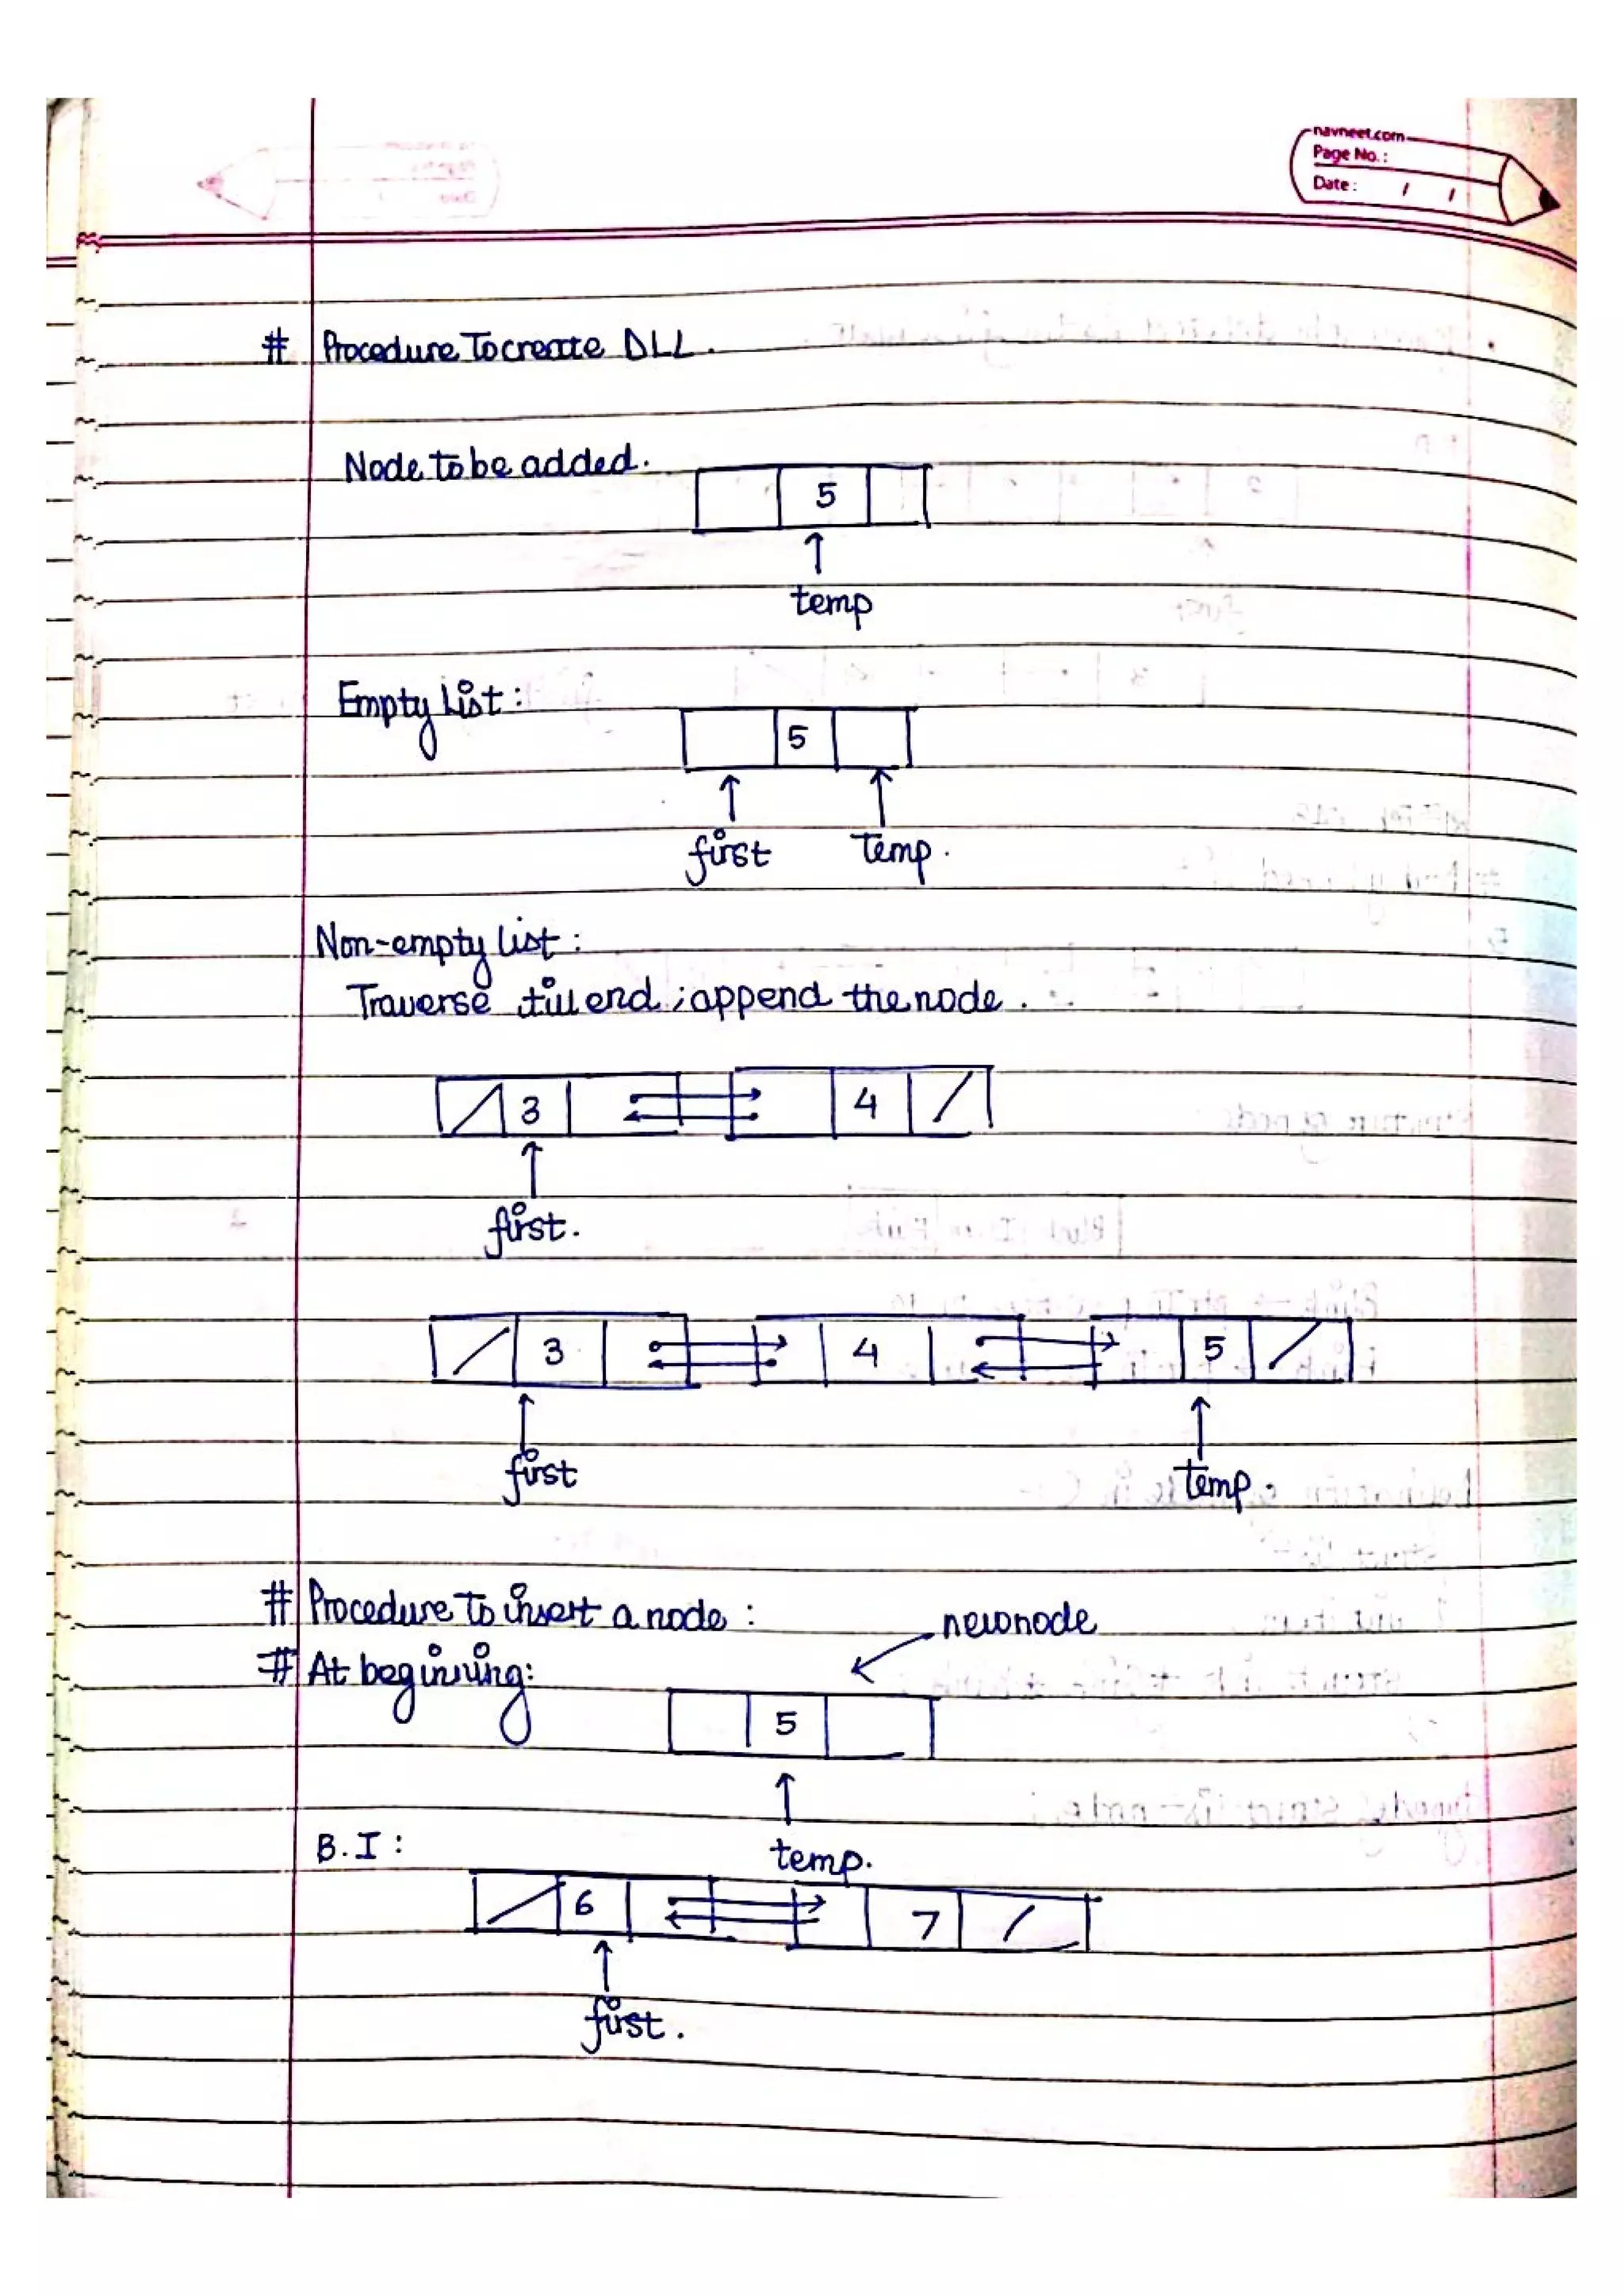 navneet.com
Page No.:
Date: / /
# Procedure To create DLL.
Node to be added.
5
temp
Empty List:
5
first temp.
Non-empty list:
Traverse till end; append the node.
3 4
first.
3 4 5
first temp.
# Procedure To insert a node: newnode
# At beginning:
5
temp.
B.I:
6 7
first.